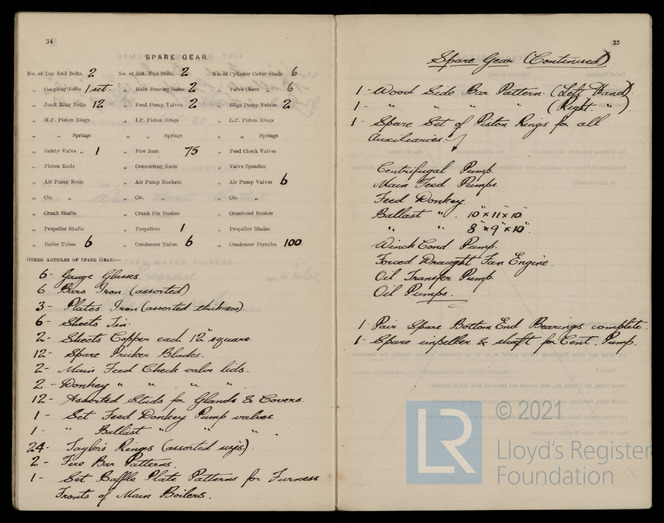 34
SPARE GEAR.
No. of Top End Bolts. 2 No. of Bot. End Bolts. 2 No. of Cylinder Cover Studs 6
„ Coupling Bolts 1 set. „ Main Bearing Bolts. 2 „ Valve Chest 6
„ Junk Ring Bolts 12 „ Feed Pump Valves 2 „ Bilge Pump Valves 2
„ H.P. Piston Rings „ I.P. Piston Rings „ L.P. Piston Rings
„ „ Springs „ „ Springs „ „ Springs
„ Safety Valve „ 1 „ Fire Bars 75 „ Feed Check Valves
„ Piston Rods „ Connecting Rods „ Valve Spindles
„ Air Pump Rods „ Air Pump Buckets „ Air Pump Valves 6
„ Cir. „ „ Cir. „ „ Cir. „
„ Crank Shafts „ Crank Pin Bushes „ Crosshead Bushes
„ Propeller Shafts „ Propellers 1 „ Propeller Blades
„ Boiler Tubes 6 „ Condenser Tubes 6 „ Condenser Ferrules 100
OTHER ARTICLES OF SPARE GEAR:—
6 - Gauge Glasses.
6 Bars Iron (assorted).
3 - Plates Iron (assorted thickness)
6 - Sheets Tin.
2 - Sheets Copper each 12" square
12 - Spare Pricker Blades.
2 - Main Feed Check valve lids.
2 - Donkey " " " "
12 - Assorted Studs for Glands & Covers.
1 - Set Feed Donkey Pump valves
1 - " Ballast " " "
24 - Taylors Rings (assorted sizes).
2 - Fire Bar Patterns.
1 - Set Baffle Plate Patterns for Furness
Fronts of Main Boilers.
35
Spare Gear (Continued)
1 - Wood Side Bar Pattern (Left Hand)
1 - " " " " (Right ")
1 - Spare Set of Piston Rings for all
Auxiliaries
Centrifugal Pump.
Main Feed Pumps
Feed Donkey.
Ballast " . 10" x 11" x 10"
" " 8" x 9" x 10"
Winch Cond Pump.
Forced Draught Fan Engine.
Oil Transfer Pump.
Oil Pumps.
1 Pair Spare Bottom End Bearings complete.
1 - Spare impeller & shaft for Cent. Pump.
LR © 2021
Lloyd's Register
Foundation